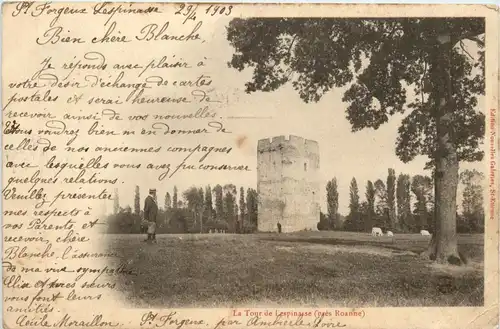 St Forgeux Lespinasse 29/4 1903
Bien chère Blanche,
Je réponds avec plaisir à
votre désir d'échange de cartes
postales et serai heureuse de
recevoir ainsi de vos nouvelles.
Vous voudrez bien m'en donner de
celles de nos anciennes compagnes
avec lesquelles vous avez pu conserver
quelques relations.
Veuillez présenter
mes respects à
vos Parents et
recevoir, chère
Blanche, l'assurance
de ma vive sympathie
et mes sœurs
vous font leurs
amitiés.
Cécile Moraillon, St Forgeux, par Ambierle Loire
La Tour de Lespinasse (près Roanne)